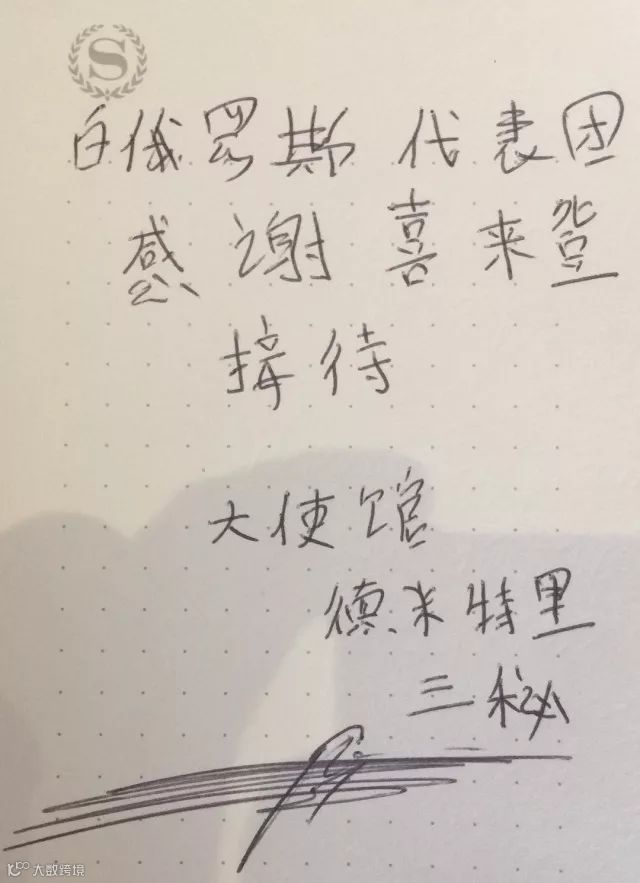 S
白俄罗斯 代表团
感谢喜来登
接待
大使馆
德米特里
三秘
大数跨境